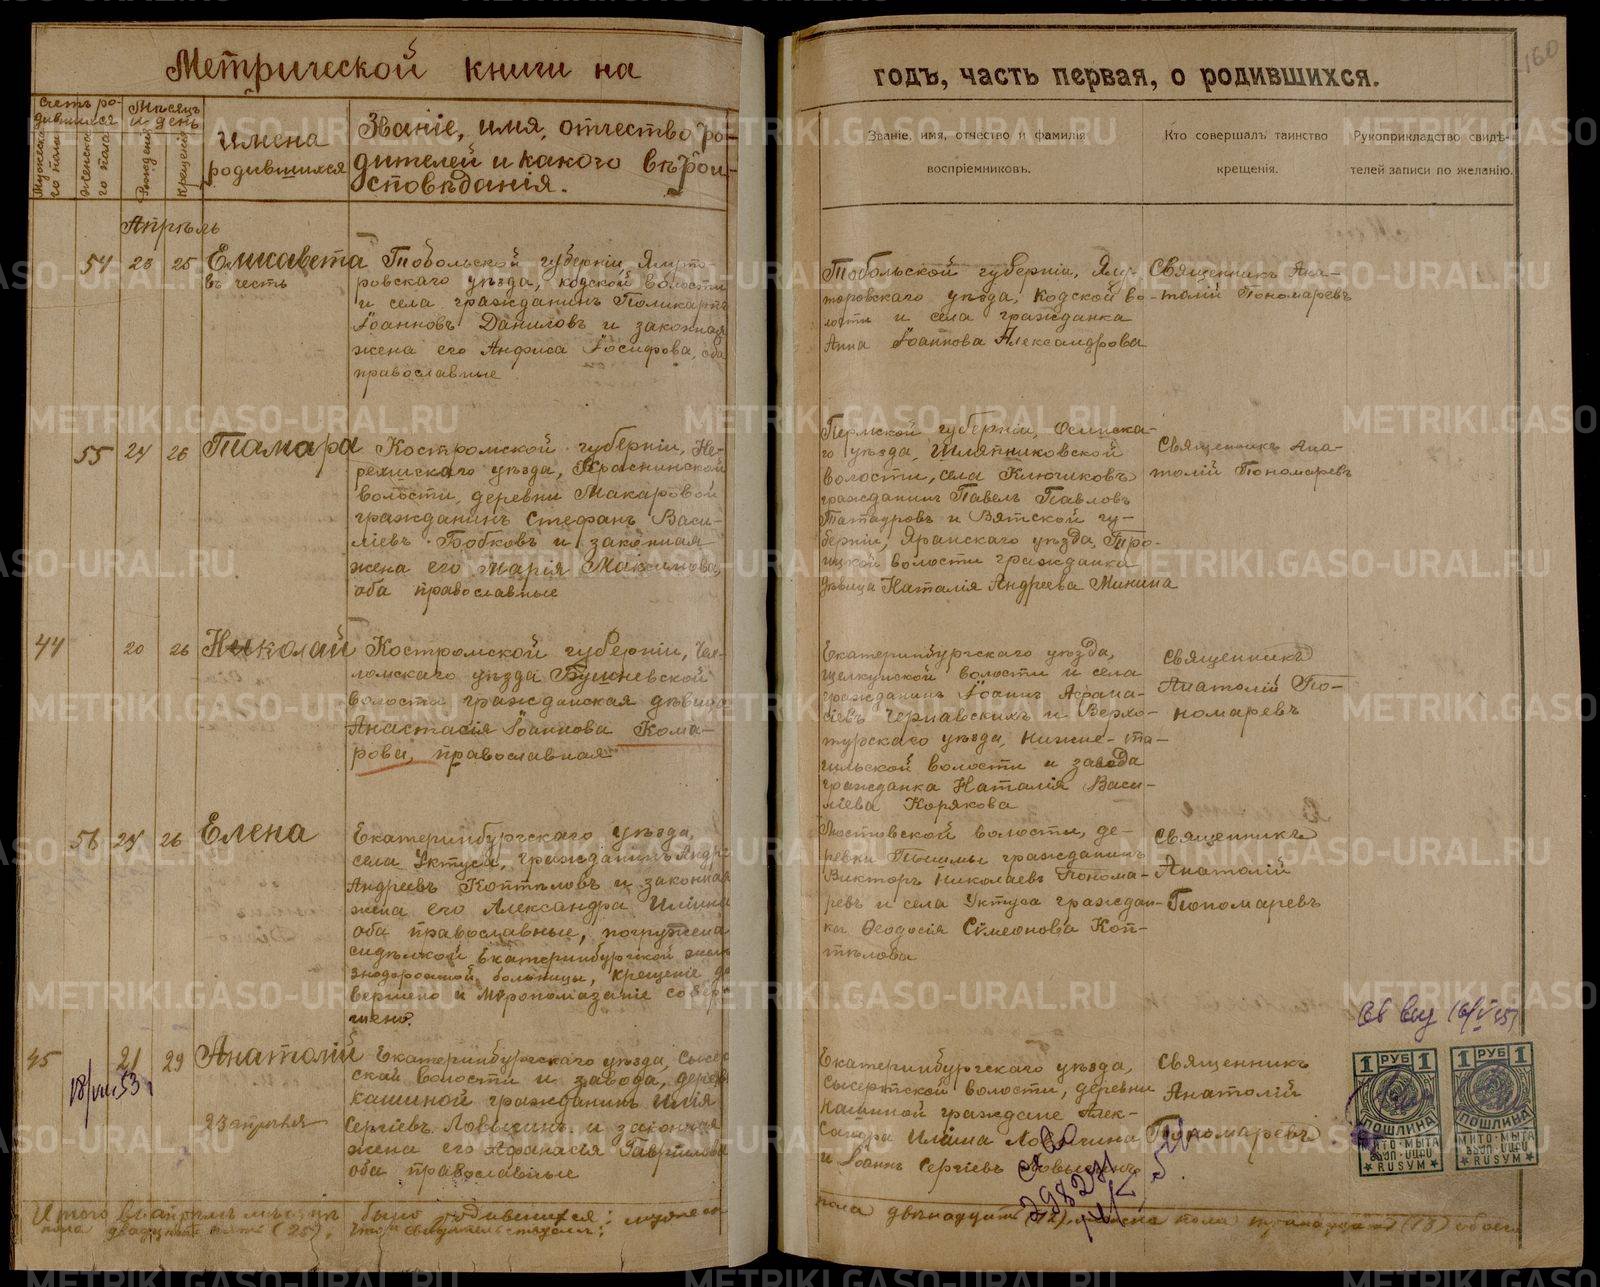 160
Метрической книги на
годъ, часть первая, о родившихся.
Счетъ родившихся
Мужского пола
Женского пола
Мѣсяцъ и день
Рожденія
Крещенія
Имена родившихся
Званіе, имя, отчество ро-
дителей и какого вѣрои-
сповѣданія.
Званіе, имя, отчество и фамилія
воспріемниковъ.
Кто совершалъ таинство
крещенія.
Рукоприкладство свидѣ-
телей записи по желанію.
Апрѣль
54 23 25 Елисавета
въ честь
Тобольской губерніи, Ялуто-
ровскаго уѣзда, Кодской волости
и села гражданинъ Поликарпъ
Іоанновъ Даниловъ и законная
жена его Анфиса Іосифова, оба
православные
Тобольской губерніи, Ялу-
торовскаго уѣзда, Кодской во-
лости и села гражданка
Анна Іоаннова Александрова
Священникъ Ана-
толій Пономаревъ
55 24 26 Тамара
Костромской губерніи, Не-
рехтскаго уѣзда, Краснинской
волости, деревни Макаровой
гражданинъ Стефанъ Васи-
ліевъ Бобковъ и законная
жена его Марія Максимова,
оба православные
Пермской губерніи, Осинска-
го уѣзда, Шляпниковской
волости, села Ключиковъ
гражданинъ Павелъ Павловъ
Татауровъ и Вятской гу-
берніи, Яранскаго уѣзда, Тро-
ицкой волости гражданка
дѣвица Наталія Андреева Минина
Священникъ Ана-
толій Пономаревъ
44 20 26 Николай
Костромской губерніи,
уѣзда
волости гражданская дѣвица
Анастасія Іоаннова Кома-
рова, православная
Екатеринбургского уѣзда,
Щелкунской волости и села
гражданинъ Іоаннъ Афана-
сіевъ Чернавскихъ и Верхо-
турскаго уѣзда, Нижне-та-
гильской волости и завода
гражданка Наталія Васи-
ліева Корякова
Священникъ
Анатолій По-
номаревъ
56 24 26 Елена
Екатеринбургскаго уѣзда,
села Уктуса, гражданинъ Андрей
Андреевъ Коптѣловъ и законная
жена его Александра Иліина
оба православные, погружена
сидѣлкой Екатеринбургской желѣ-
знодорожной больницы, крещеніе до-
вершено и Мѵропомазаніе совер-
шено.
волости, де-
ревни гражданинъ
Викторъ Николаевъ Понома-
ревъ и села Уктуса граждан-
ка Ѳеодосія Сѵмеонова Коп-
тѣлова
Священникъ
Анатолій
Пономаревъ
45 21 29 Анатолій
23 апрѣля
Екатеринбургскаго уѣзда, Сысерт-
ской волости и завода, деревни
Кашиной гражданинъ Илія
Сергіевъ Ловыгинъ и законная
жена его Афанасія Гаврилова
оба православные
Екатеринбургскаго уѣзда,
Сысертской волости, деревни
Кашиной граждане Алек-
сандра Иліина Ловыгина
и Іоаннъ Сергіевъ Ловыгинъ
Священникъ
Анатолій
Пономаревъ
1 РУБ 1
ПОШЛИНА
МИТО·МЫТА
RUSYM
1 РУБ 1
ПОШЛИНА
МИТО·МЫТА
RUSYM
Итого въ апрѣлѣ мѣсяцѣ было родившихся: мужеско
пола двѣнадцать (12), женска пола тринадцать (13) обоего
пола двадцать пять (25). Что и свидѣтельствуемъ: